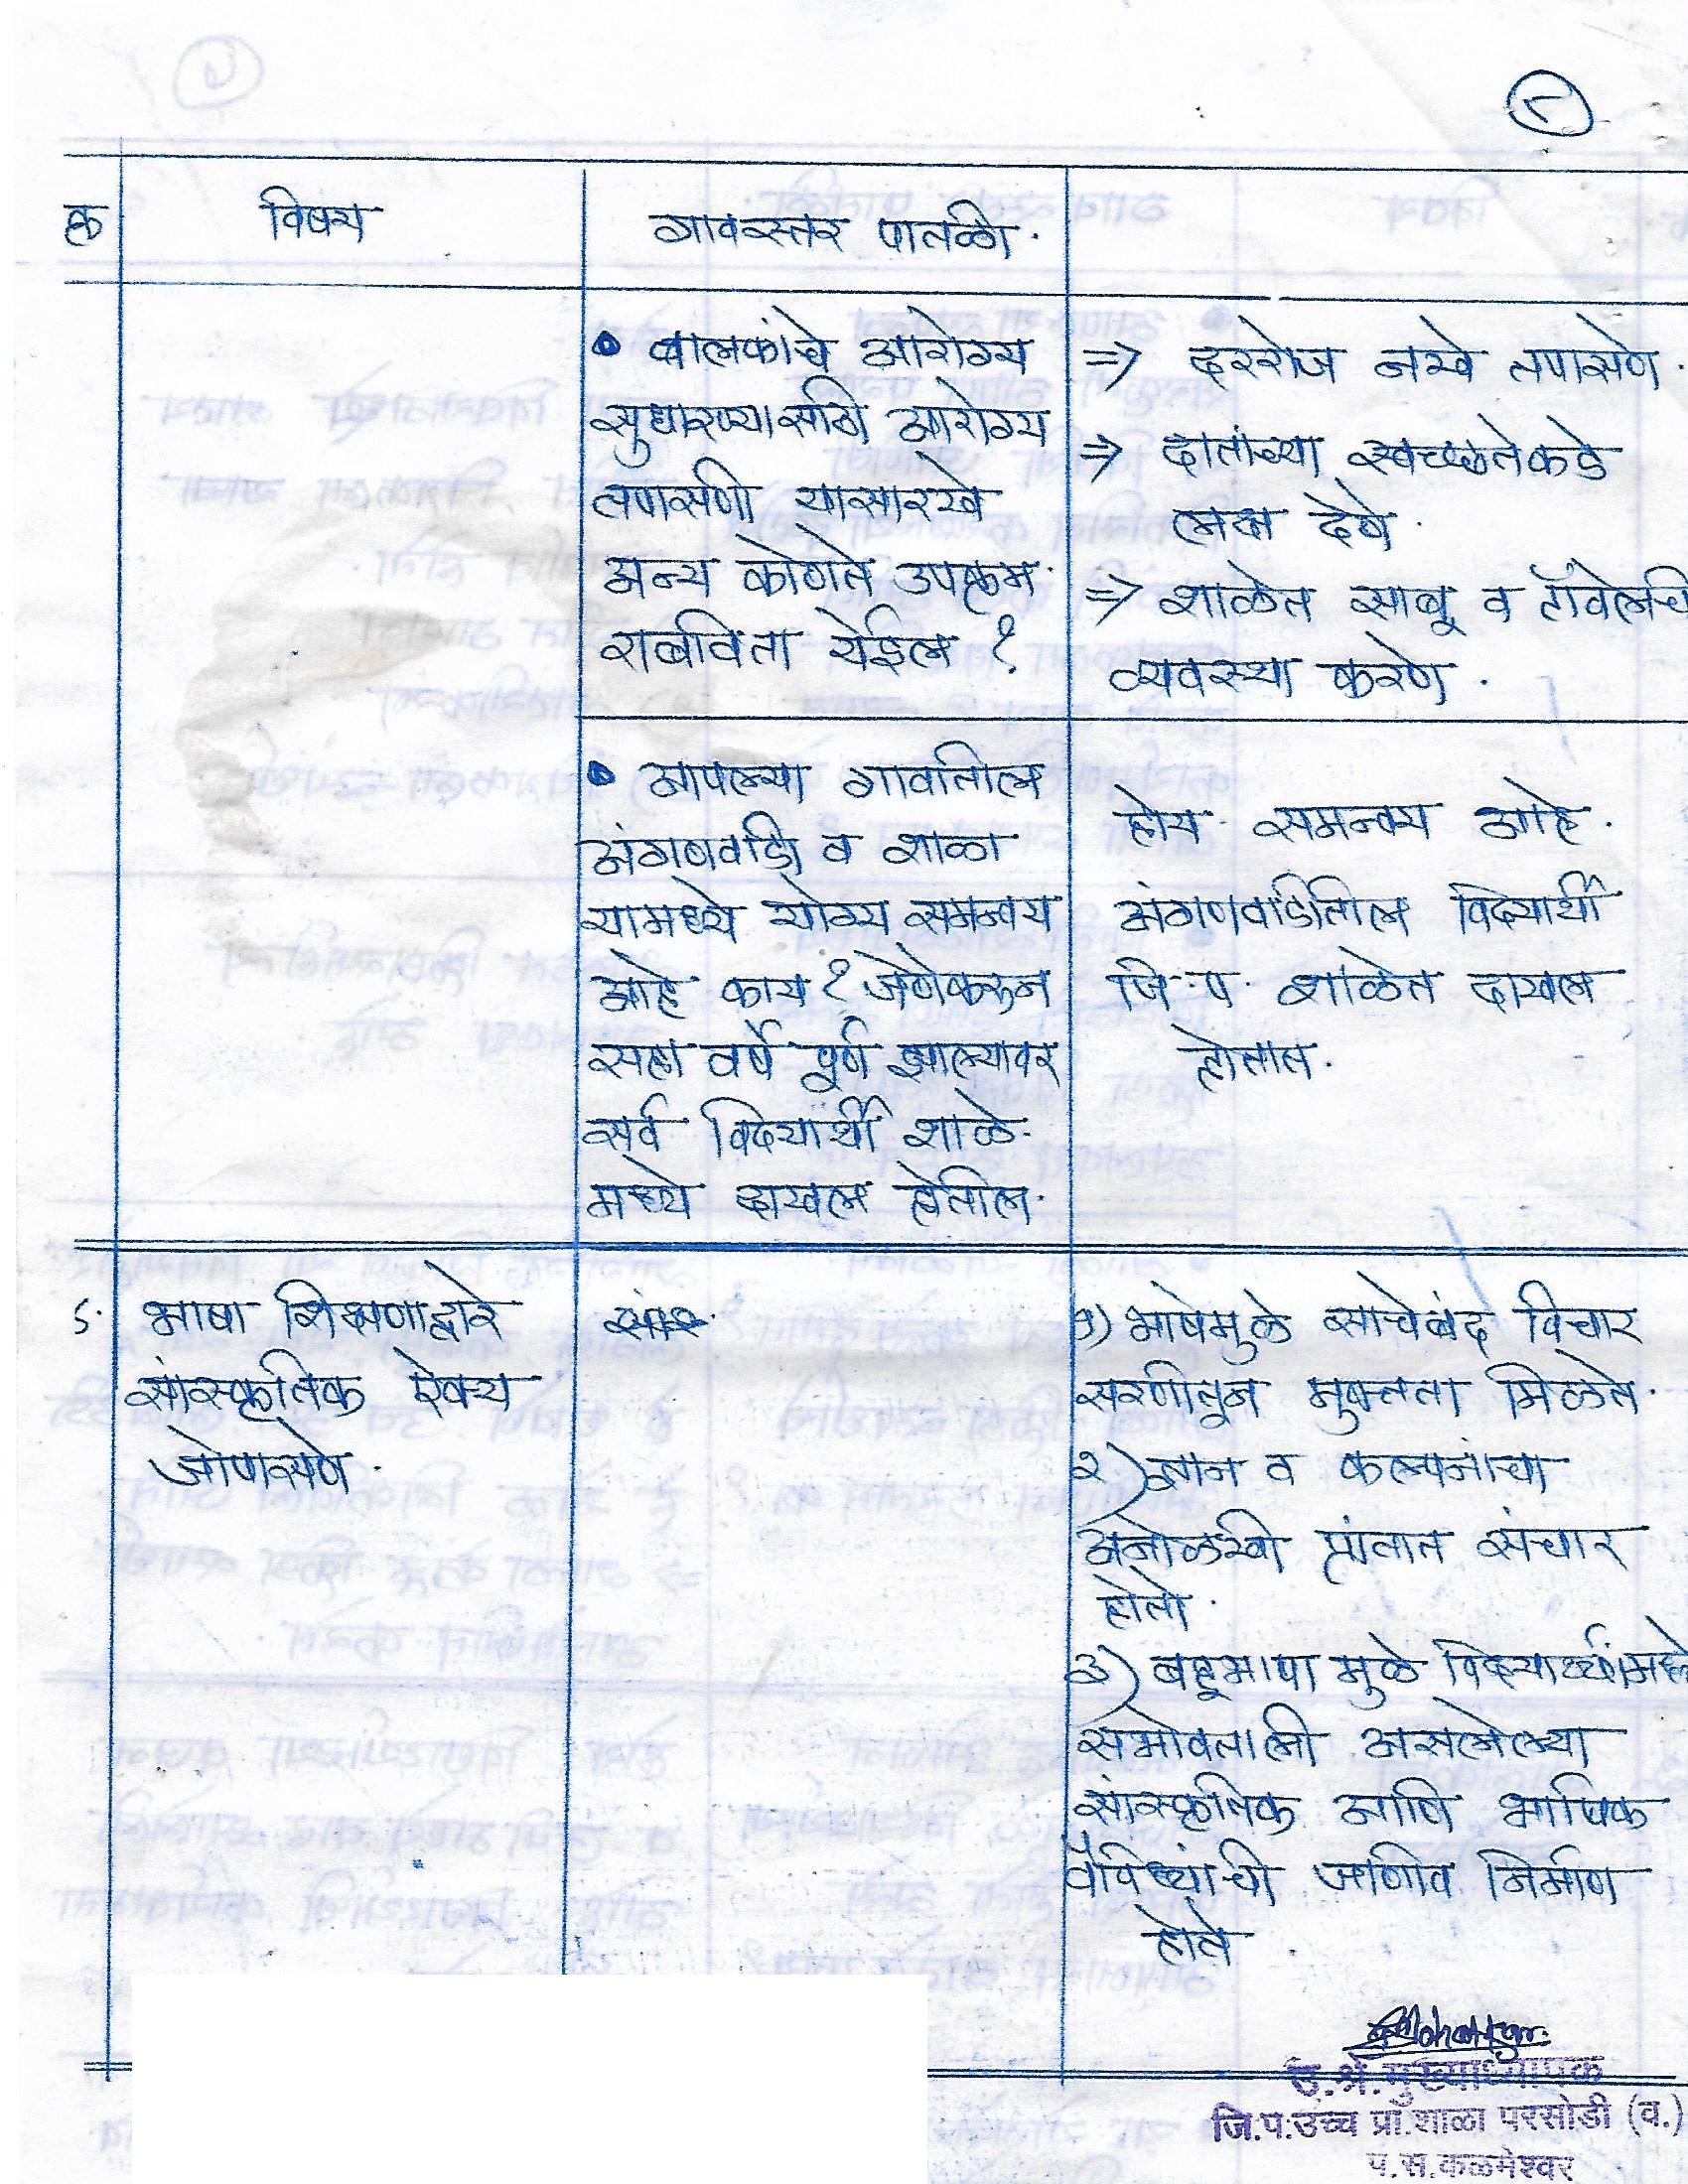 ८
क्र विषय गावस्तर पातळी.
• बालकांचे आरोग्य
सुधारण्यासाठी आरोग्य
तपासणी यासारखे
अन्य कोणते उपक्रम
राबविता येईल ?
⇒ दररोज नखे तपासणे.
⇒ दातांच्या स्वच्छतेकडे
लक्ष देणे.
⇒ शाळेत साबू व टॉवेलची
व्यवस्था करणे.
• आपल्या गावातील
अंगणवाडी व शाळा
यामध्ये योग्य समन्वय
आहे काय? जेणेकरून
सहा वर्षे पूर्ण झाल्यावर
सर्व विद्यार्थी शाळे-
मध्ये दाखल होतील.
होय समन्वय आहे.
अंगणवाडीतील विद्यार्थी
जि.प. शाळेत दाखल
होतात.
5. भाषा शिक्षणाद्वारे
सांस्कृतिक ऐक्य
जोपासणे.
१) भाषेमुळे साचेबंद विचार
सरणीतून मुक्तता मिळते.
२) ज्ञान व कल्पनांचा
अनोळखी प्रांतात संचार
होतो.
३) बहूभाषा मुळे विद्यार्थ्यांमध्ये
सभोवताली असलेल्या
सांस्कृतिक आणि भाषिक
वैविध्यांची जाणीव निर्माण
होते.
उ.श्रे.मुख्याध्यापक
जि.प.उच्च प्रा.शाळा परसोडी (व.)
प.स.कळमेश्वर